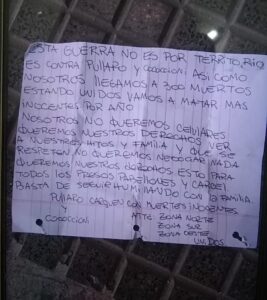 ESTA GUERRA NO ES POR TERRITORIO
ES CONTRA PULLARO Y COCOCCIONI ASI COMO
NOSOTROS LLEGAMOS A 300 MUERTOS
ESTANDO UNIDOS VAMOS A MATAR MAS
INOCENTES POR AÑO
NOSOTROS NO QUEREMOS CELULARES
QUEREMOS NUESTROS DERECHOS VER
A NUESTROS HIJOS Y FAMILA Y QUE SE
RESPETEN NO QUEREMOS NEGOCIAR NADA
QUEREMOS NUESTROS DERECHOS ESTO PARA
TODOS LOS PRESOS PABELLONES Y CARCEL
BASTA DE SEGUIR HUMILLANDO CON LA FAMILIA
PULLARO CARGUEN CON MUERTES INOCENTES
Y
COCOCCIONI
ATTE: ZONA NORTE
ZONA SUR
ZONA OESTE
UNIDOS